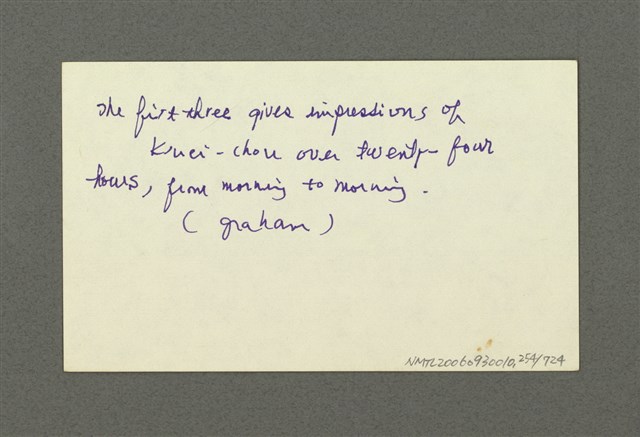 The first three gives impressions of
Kuei-chou over twenty four
hours, from morning to morning.
( graham )
NMTL20060930010,254/724